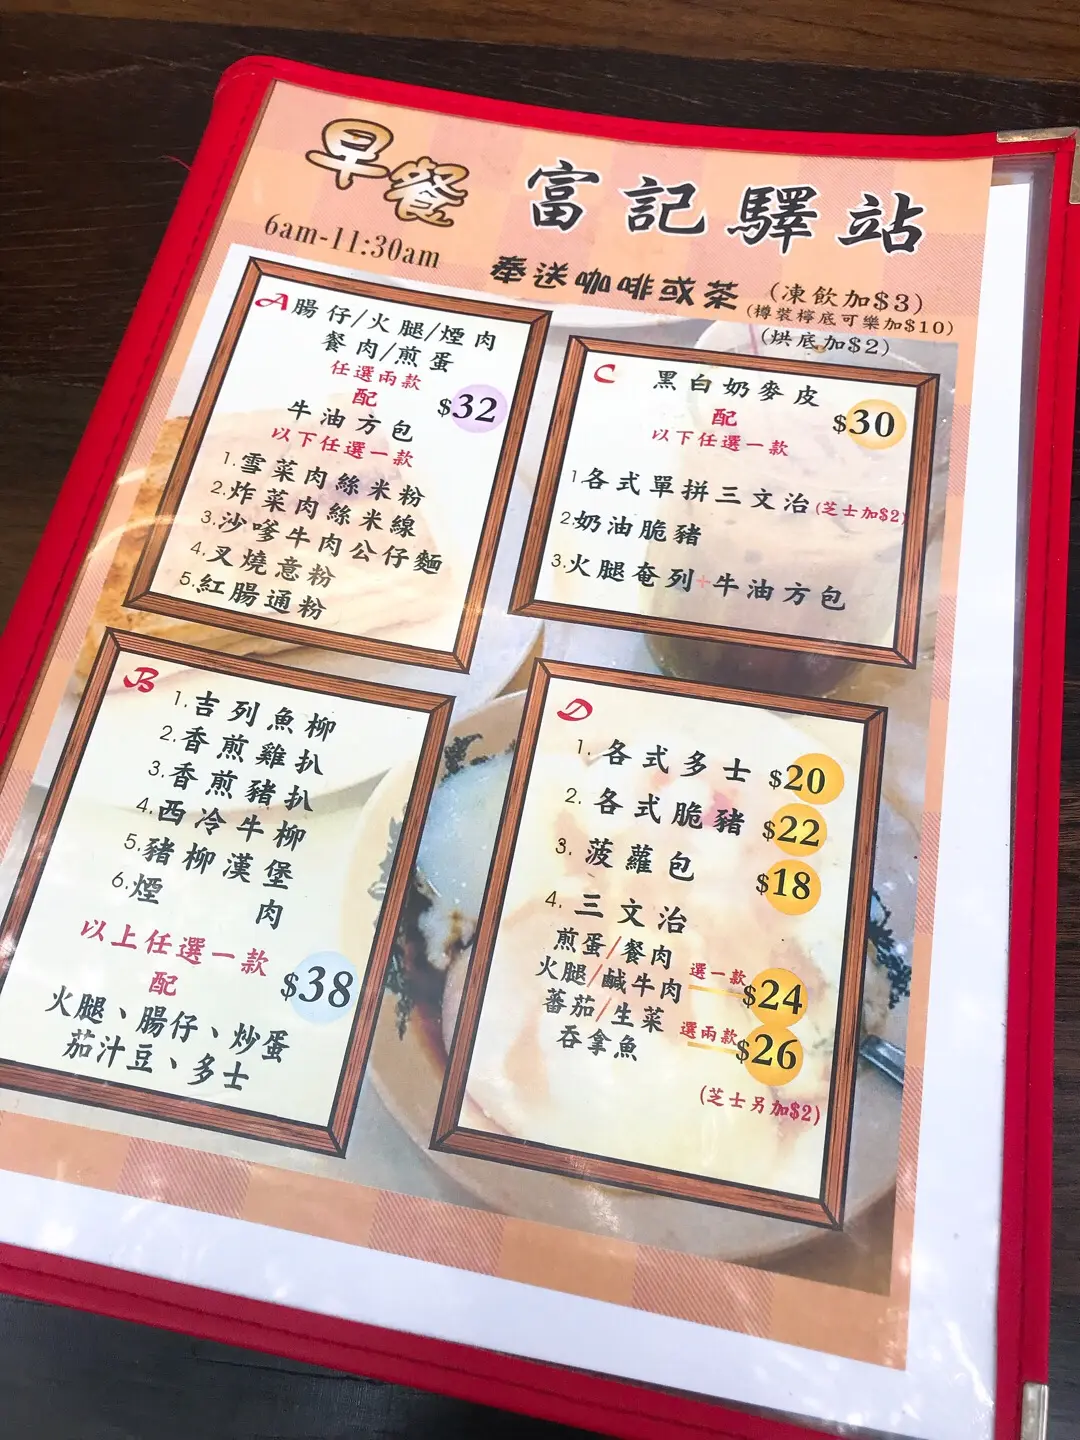 早餐
富記驛站
6am-11:30am
奉送咖啡或茶
(凍飲加$3)
(樽裝檸底可樂加$10)
(烘底加$2)
A 腸仔/火腿/煙肉
餐肉/煎蛋
任選兩款
配
$32
牛油方包
以下任選一款
1.雪菜肉絲米粉
2.炸菜肉絲米線
3.沙嗲牛肉公仔麵
4.叉燒意粉
5.紅腸通粉
B
1.吉列魚柳
2.香煎雞扒
3.香煎豬扒
4.西冷牛柳
5.豬柳漢堡
6.煙 肉
以上任選一款
配
$38
火腿、腸仔、炒蛋
茄汁豆、多士
C 黑白奶麥皮
配
$30
以下任選一款
1各式單拼三文治(芝士加$2)
2.奶油脆豬
3.火腿奄列+牛油方包
D
1. 各式多士 $20
2. 各式脆豬 $22
3. 菠蘿包 $18
4. 三文治
煎蛋/餐肉
火腿/鹹牛肉 選一款 $24
蕃茄/生菜 選兩款 $26
吞拿魚
(芝士另加$2)